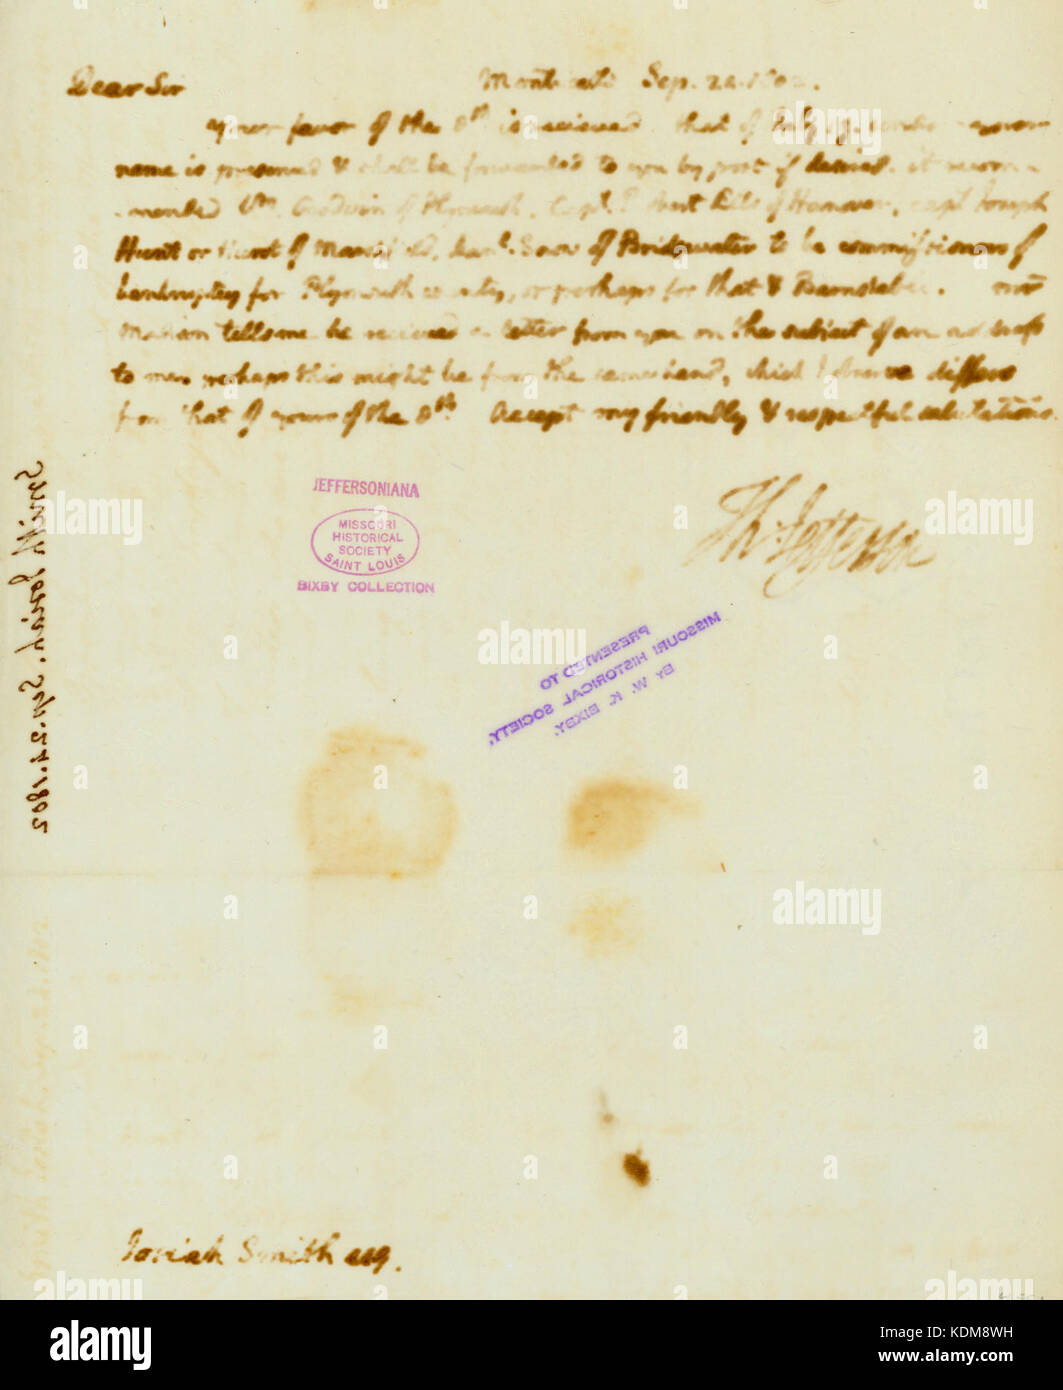 Dear Sir Monticello Sep. 24. 1802.
your favor of the 8th is recieved. that of July 17. under
name is preserved & shall be forwarded to you by post if desired. it recom-
-mended Wm. Goodwin of Plymouth, Capt. Albert of Hanover, capt Joseph
Hunt or Hurst of Mansfield, Danl. Snow of Bridgwater to be commissioners of
bankruptcy for Plymouth county, or perhaps for that & Barnstable. mr
Madison tells me he recieved a letter from you on the subject of an address
to me. perhaps this might be from the same hand, which I observe differs
from that of yours of the 8th. Accept my friendly & respectful salutations.
Th: Jefferson
JEFFERSONIANA
MISSOURI
HISTORICAL
SOCIETY
SAINT LOUIS
BIXBY COLLECTION
PRESENTED TO
MISSOURI HISTORICAL SOCIETY,
BY W. K. BIXBY.
Smith Josiah. Sep. 24. 1802
Josiah Smith esq.
alamy
Image ID: KDM8WH
www.alamy.com